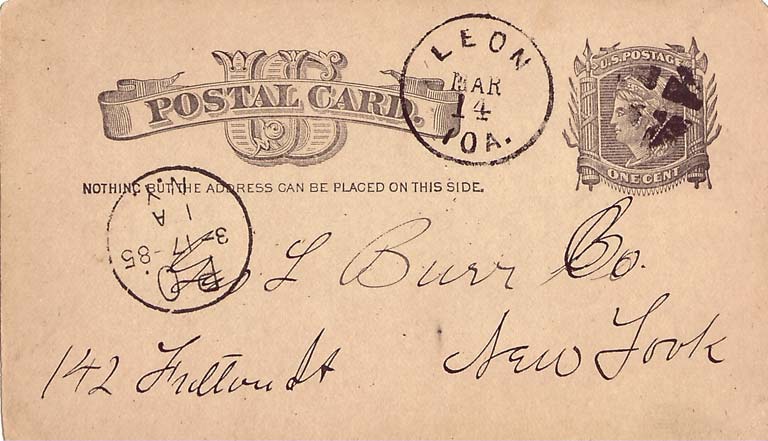 US
POSTAL CARD.
LEON
MAR
14
IOA.
U.S. POSTAGE
ONE CENT
NOTHING BUT THE ADDRESS CAN BE PLACED ON THIS SIDE.
N.Y.
1 A
3-17-85
P O
L Burr Co.
142 Fulton St New York